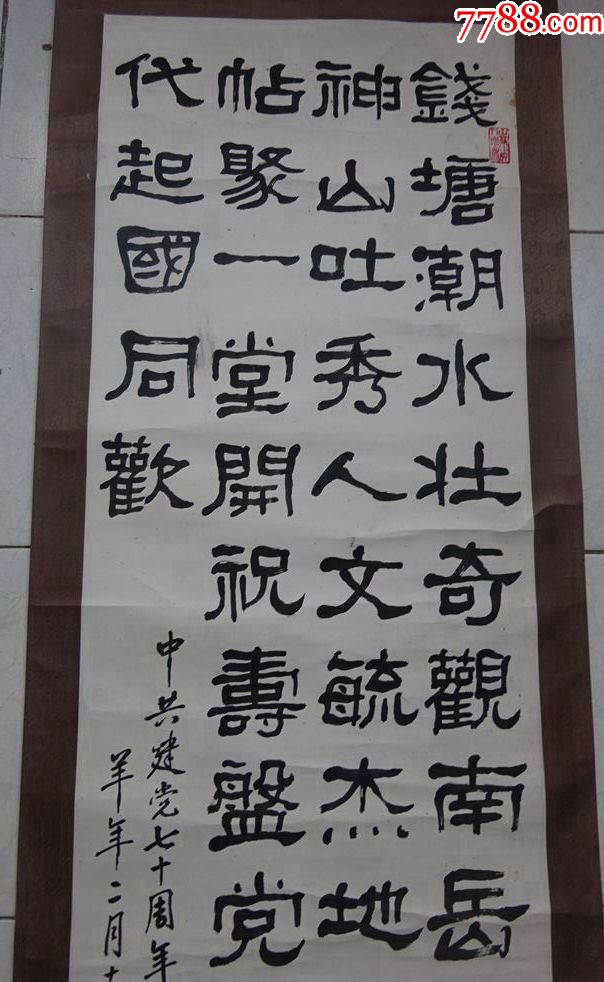 7788.com
錢塘潮水壯奇觀南岳
神山吐秀人文毓杰地
帖聚一堂開祝壽盤党
代起國同歡
中共建党七十周年
羊年二月十